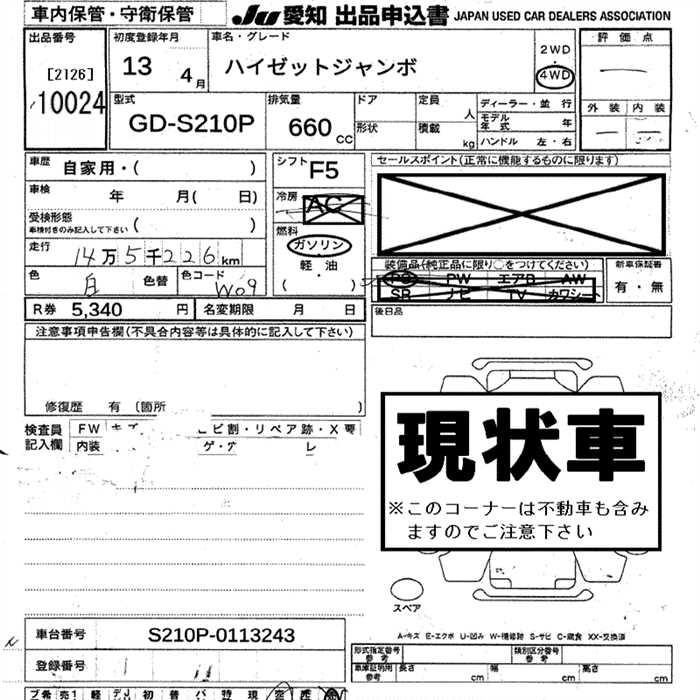 車内保管・守衛保管
JU 愛知 出品申込書 JAPAN USED CAR DEALERS ASSOCIATION
出品番号
[2126]
10024
初度登録年月
13 4月
車名・グレード
ハイゼットジャンボ
2WD
4WD
評価点
外装 内装
型式
GD-S210P
排気量
660 CC
ドア
形状
定員 人
積載 kg
ディーラー・並行
モデル年式 年
ハンドル 左・右
車歴 自家用・( )
車検 年 月( 日)
受検形態
車検付きのみ記入して下さい ( )
走行 14万5千226km
色 白 色替 色コード W09
シフト F5
冷房 AC
燃料
ガソリン
軽・油
( )
セールスポイント(正常に機能するものに限ります)
装備品(純正品に限り○をつけてください)
PS PW エアB AW
SR ナビ TV カワシート
新車保証書
有・無
R券 5,340 円 名変期限 月 日
後日品
注意事項申告欄(不具合内容等は具体的に記入して下さい)
修復歴 有 (箇所 )
検査員記入欄
FW キズ ヒビ割・リペア跡・X要
内装
現状車
※このコーナーは不動車も含み
ますのでご注意下さい
スペア
A-キズ E-エクボ U-凹み W-補修跡 S-サビ C-腐食 XX-交換済
車台番号 S210P-0113243
登録番号
形式指定番号 参考
類別区分番号 参考
車庫証明用 参考 長さ cm 幅 cm 高さ cm